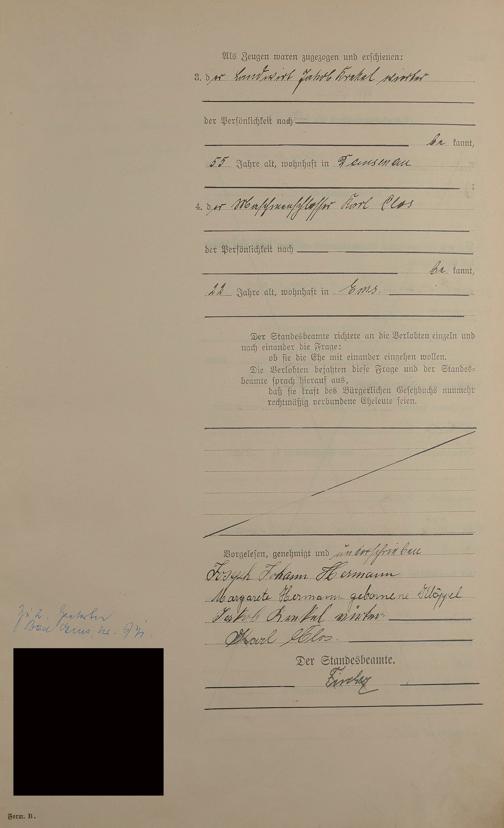 Als Zeugen waren zugezogen und erschienen:
3. der Landwirt Jakob Kunkel vierter
der Persönlichkeit nach
be kannt,
55 Jahre alt, wohnhaft in Dausenau
;
4. der Maschinenschlosser Karl Clos
der Persönlichkeit nach
be kannt,
22 Jahre alt, wohnhaft in Ems.
Der Standesbeamte richtete an die Verlobten einzeln und
nach einander die Frage:
ob sie die Ehe mit einander eingehen wollen.
Die Verlobten bejahten diese Frage und der Standes-
beamte sprach hierauf aus,
daß sie kraft des Bürgerlichen Gesetzbuchs nunmehr
rechtmäßig verbundene Eheleute seien.
Vorgelesen, genehmigt und unterschrieben
Joseph Johann Hermann
Margarete Hermann geborene Klöppel
Jakob Kunkel vierter
Karl Clos.
Der Standesbeamte.
Bad Ems, Nr.
Form. B.